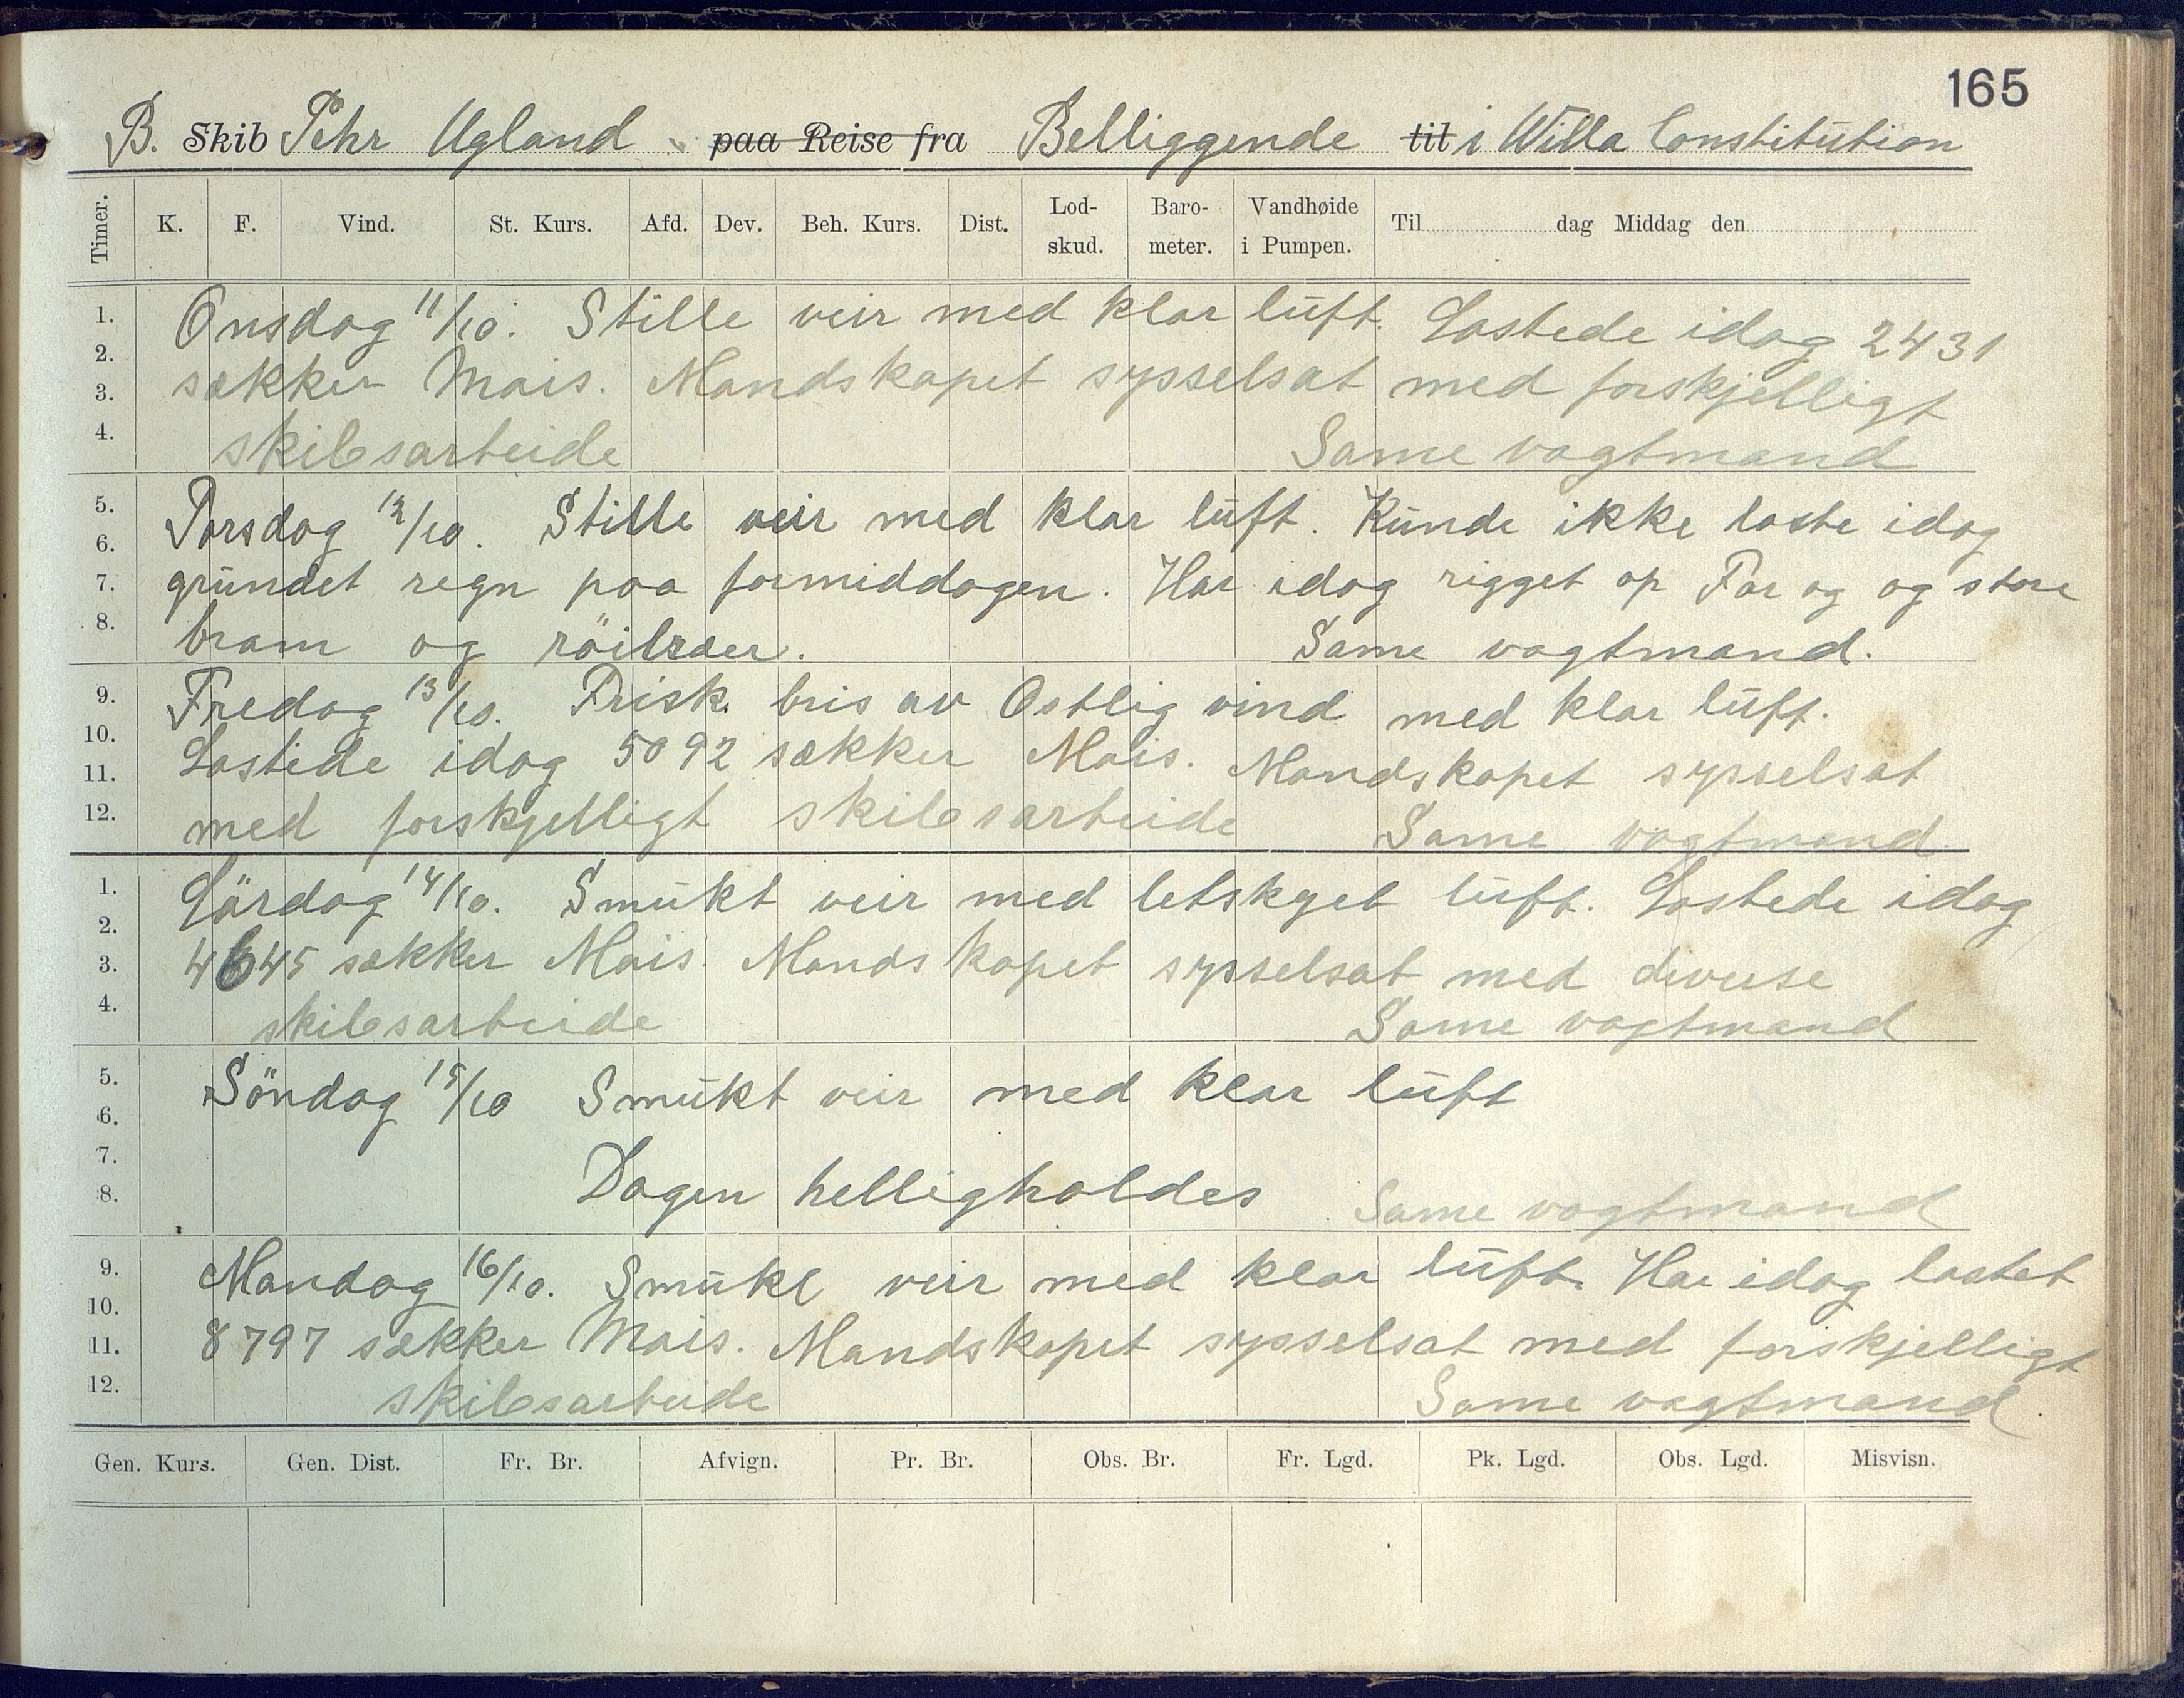 165
B. Skib Pehr Ugland paa Reise fra Belliggende til i Willa Constitution
Timer. K. F. Vind. St. Kurs. Afd. Dev. Beh. Kurs. Dist. Lod-skud. Baro-meter. Vandhøide i Pumpen. Til dag Middag den
1. Onsdag 11/10. Stille veir med klar luft. Lastede idag 2431
2.
3. sækker Mais. Mandskapet sysselsat med forskjelligt
4. skibsarbeide Same vagtmand
5. Torsdag 12/10. Stille veir med klar luft. Kunde ikke laste idag
6.
7. grundet regn paa formiddagen. Har idag rigget op For og og store
8. bram og röilræer. Same vagtmand.
9. Fredag 13/10. Frisk bris av Ostlig vind med klar luft.
10.
11. Lastede idag 5092 sækker Mais. Mandskapet sysselsat
12. med forskjelligt skibsarbeide Same vagtmand
1. Lärdag 14/10. Smukt veir med letskyet luft. Lastede idag
2.
3. 4645 sækker Mais. Mandskapet sysselsat med diverse
4. skibsarbeide Same vagtmand
5. Söndag 15/10 Smukt veir med klar luft
6.
7.
8. Dagen helligholdes Same vagtmand
9. Mandag 16/10. Smukt veir med klar luft. Har idag lastet
10.
11. 8797 sækker Mais. Mandskapet sysselsat med forskjelligt
12. skibsarbeide Same vagtmand.
Gen. Kurs. Gen. Dist. Fr. Br. Afvign. Pr. Br. Obs. Br. Fr. Lgd. Pk. Lgd. Obs. Lgd. Misvisn.